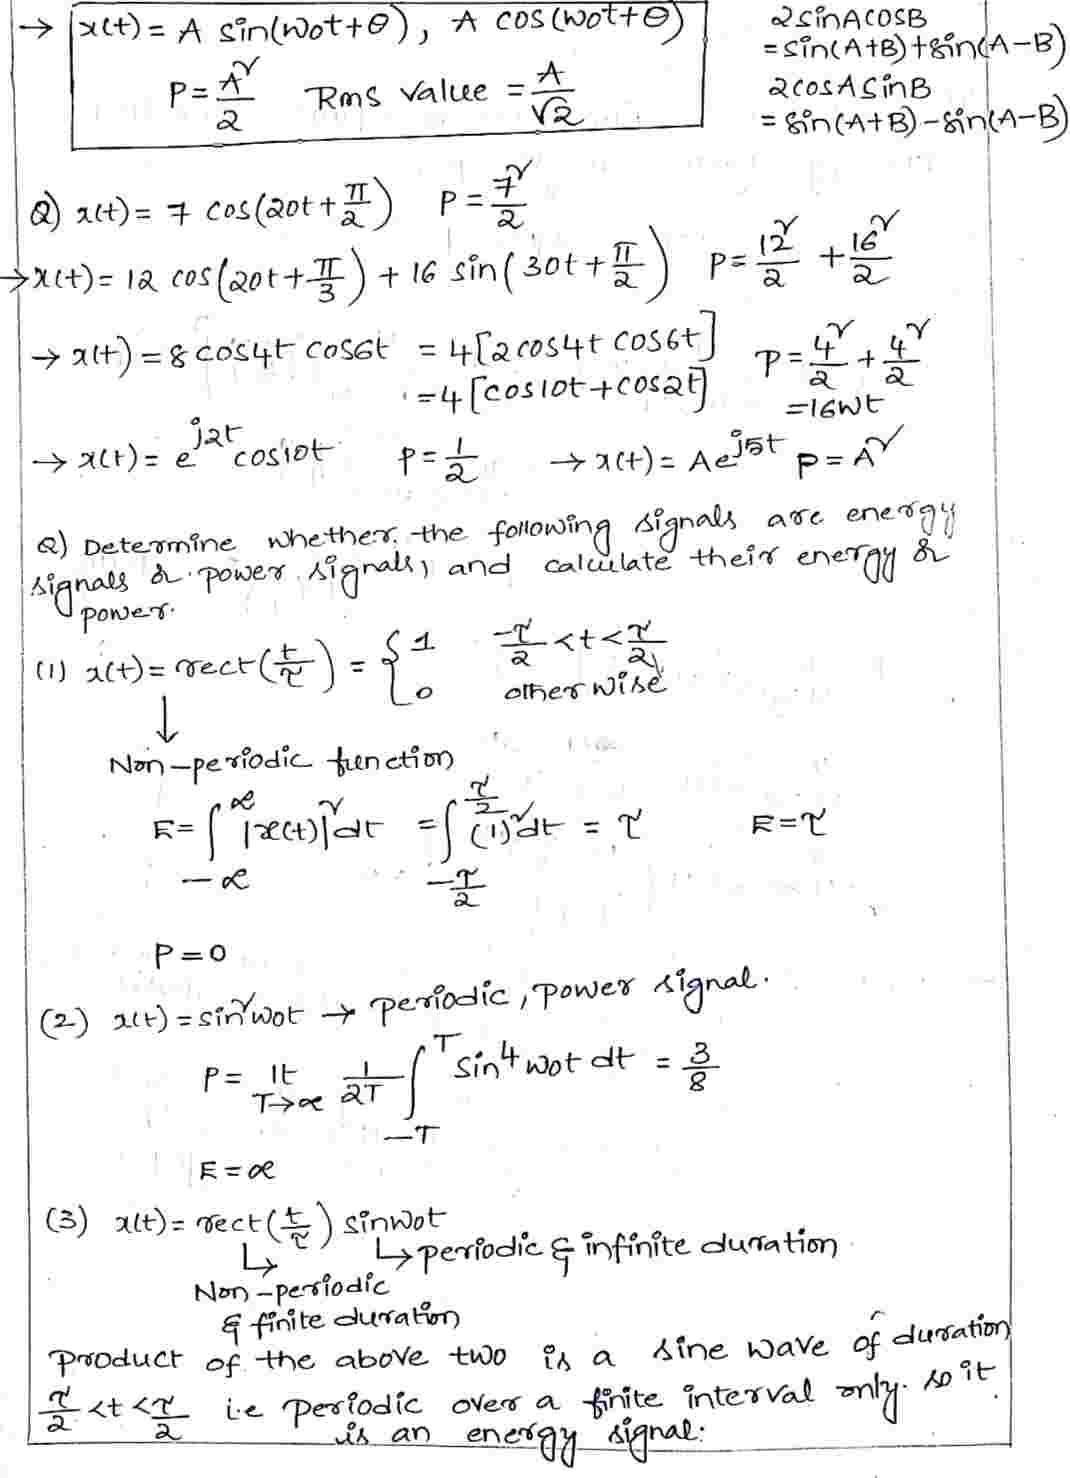 → x(t) = A sin(ωot+θ), A cos(ωot+θ)
P = A²/2 Rms value = A/√2
2sinAcosB
= sin(A+B)+sin(A-B)
2cosAsinB
= sin(A+B)-sin(A-B)
Q) x(t) = 7 cos(20t+π/2) P = 7²/2
→ x(t) = 12 cos(20t+π/3) + 16 sin(30t+π/2) P = 12²/2 + 16²/2
→ x(t) = 8 cos4t cos6t = 4[2cos4t cos6t] P = 4²/2 + 4²/2
= 4[cos10t+cos2t] = 16wt
→ x(t) = e^{j2t} cos10t P = 1/2 → x(t) = Ae^{j5t} P = A²
Q) Determine whether the following signals are energy
signals or power signals, and calculate their energy or
power.
(1) x(t) = rect(t/τ) = { 1 -τ/2 <t< τ/2
0 otherwise
↓
Non-periodic function
E = ∫_{-∞}^{∞} |x(t)|² dt = ∫_{-τ/2}^{τ/2} (1)² dt = τ E = τ
P = 0
(2) x(t) = sin²ωot → periodic, power signal.
P = lt T→∞ 1/2T ∫_{-T}^{T} sin⁴ωot dt = 3/8
E = ∞
(3) x(t) = rect(t/τ) sinωot
↳ periodic & infinite duration
↳ Non-periodic
& finite duration
product of the above two is a sine wave of duration
τ/2 <t< τ/2 i.e periodic over a finite interval only. so it
is an energy signal.